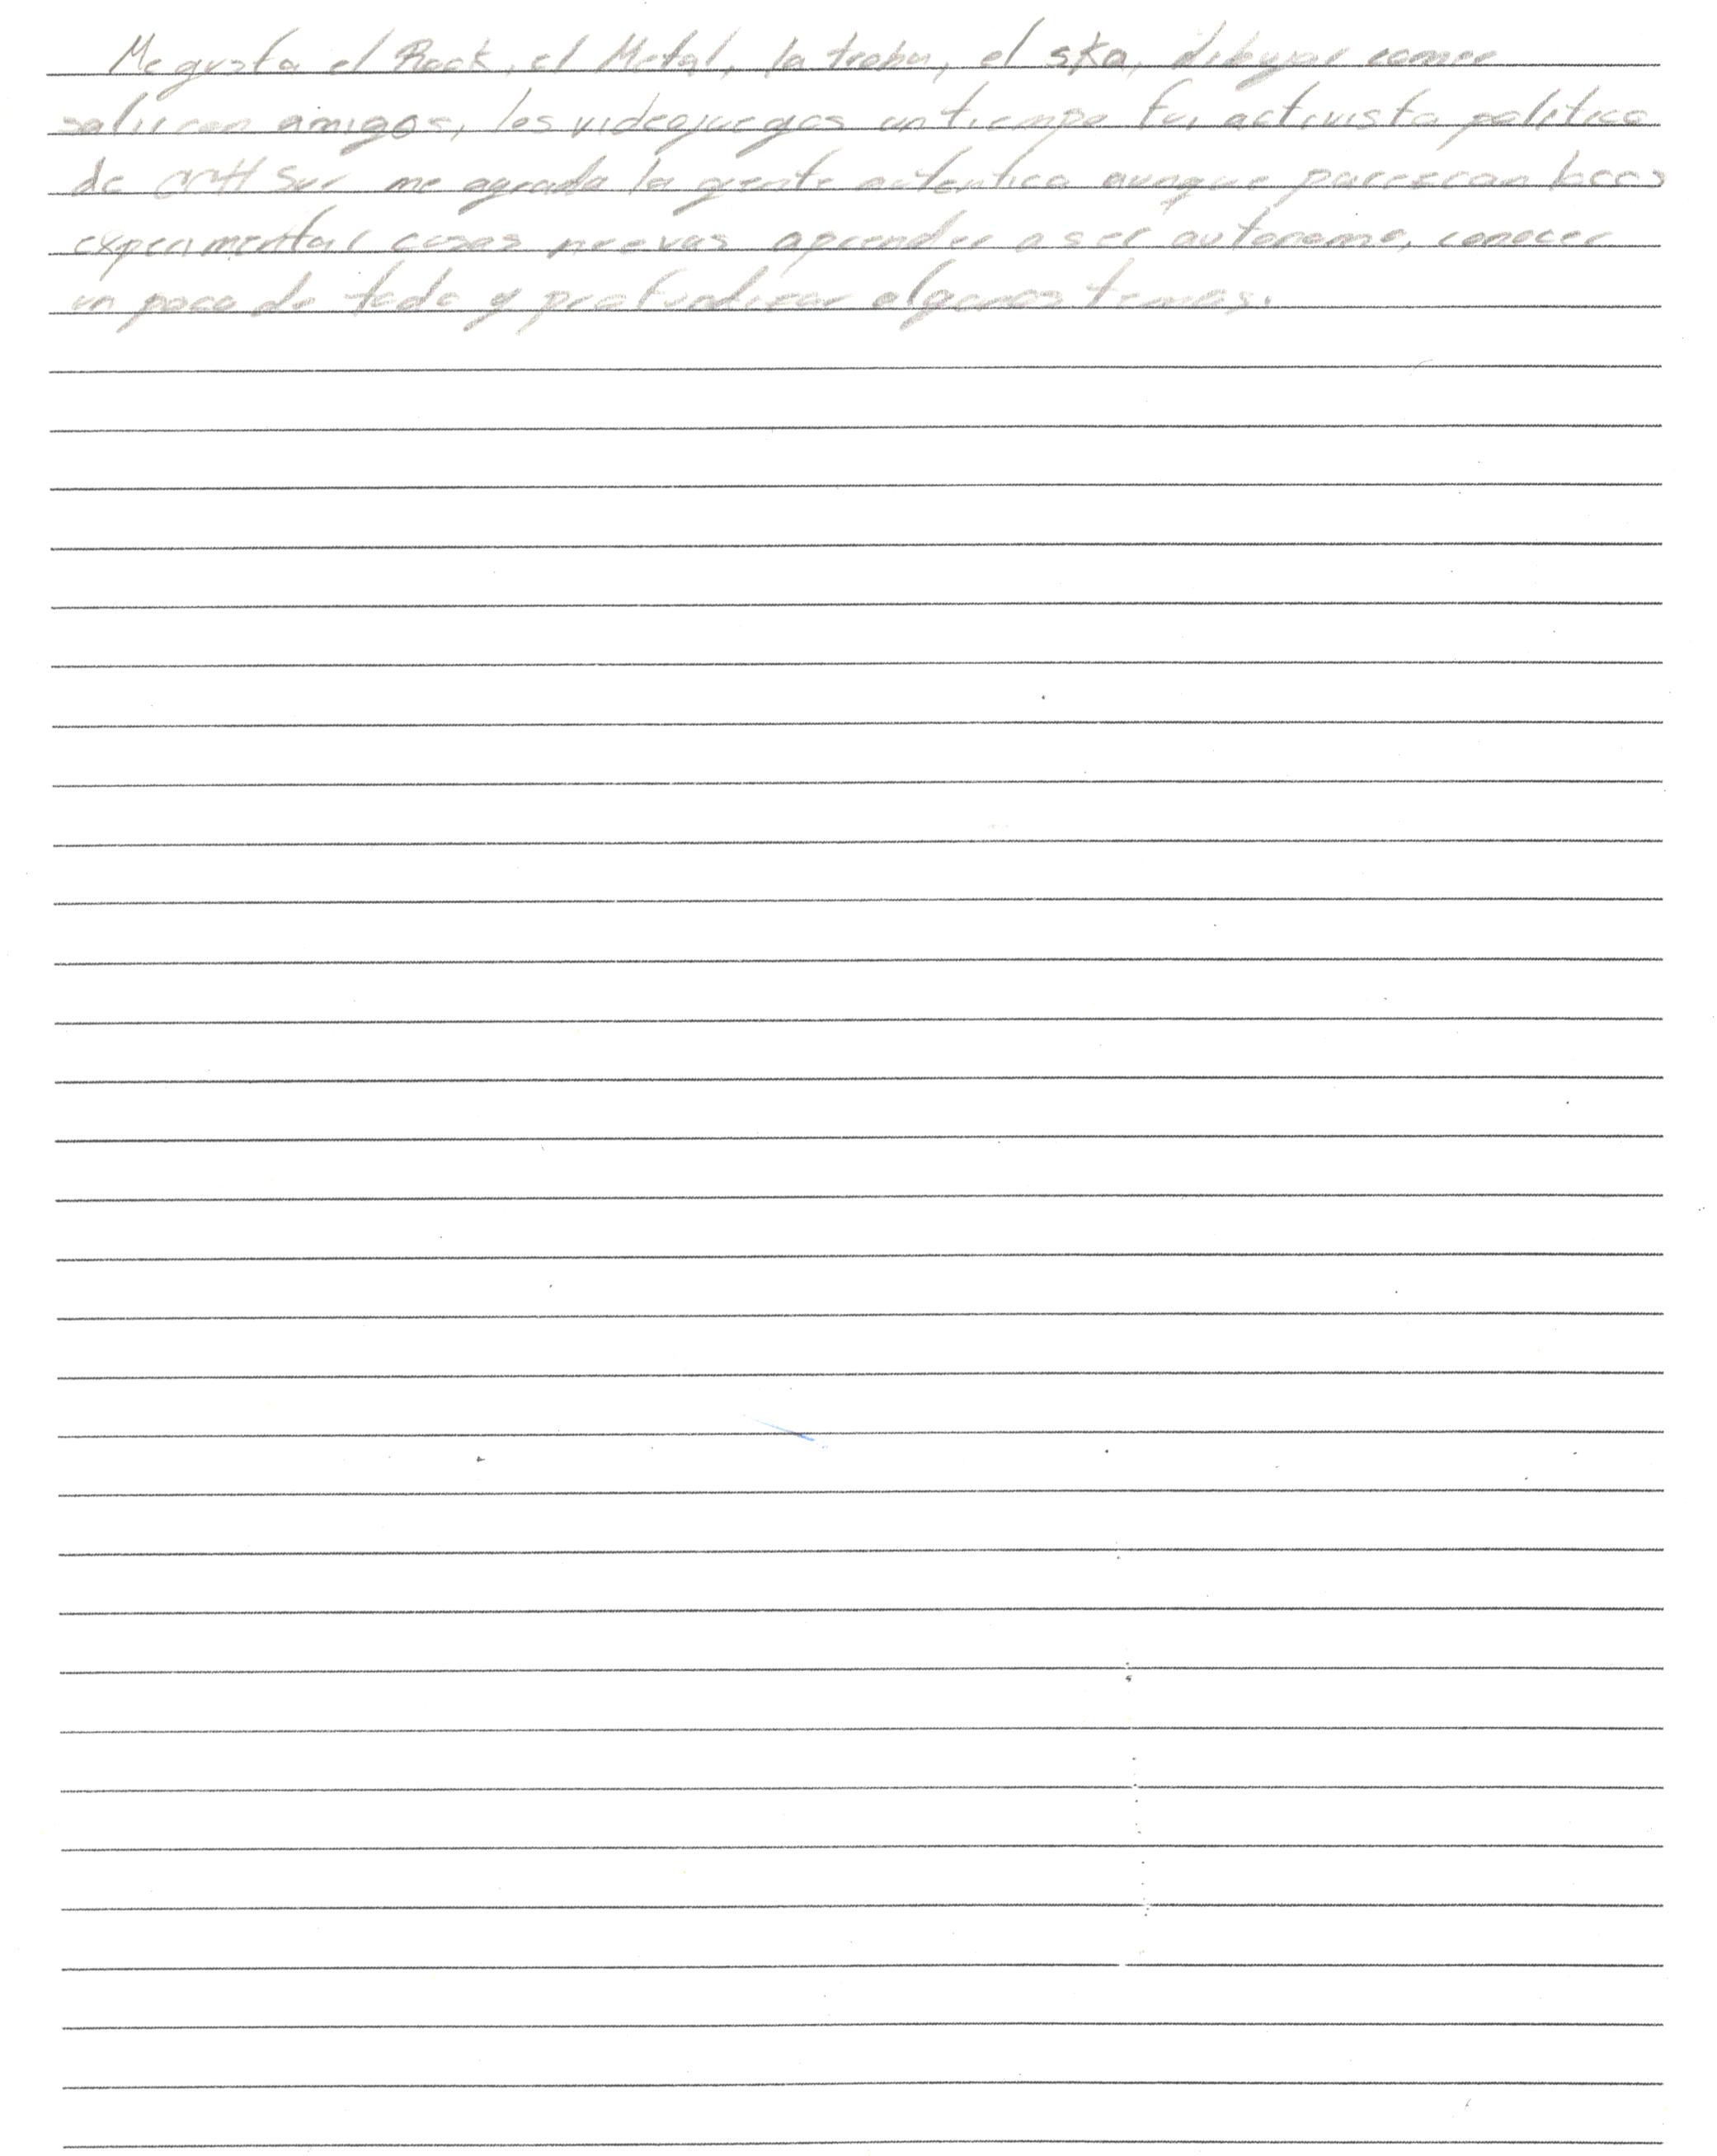 Me gusta el Rock, el Metal, la troba, el ska, dibujar comer
salir con amigos, los videojuegos un tiempo fui activista politico
de CCH Sur me agrada la gente autentica aunque parezcan locos
experimentar cosas nuevas aprender a ser autonomo, conocer
un poco de todo y profundizar algunos temas.